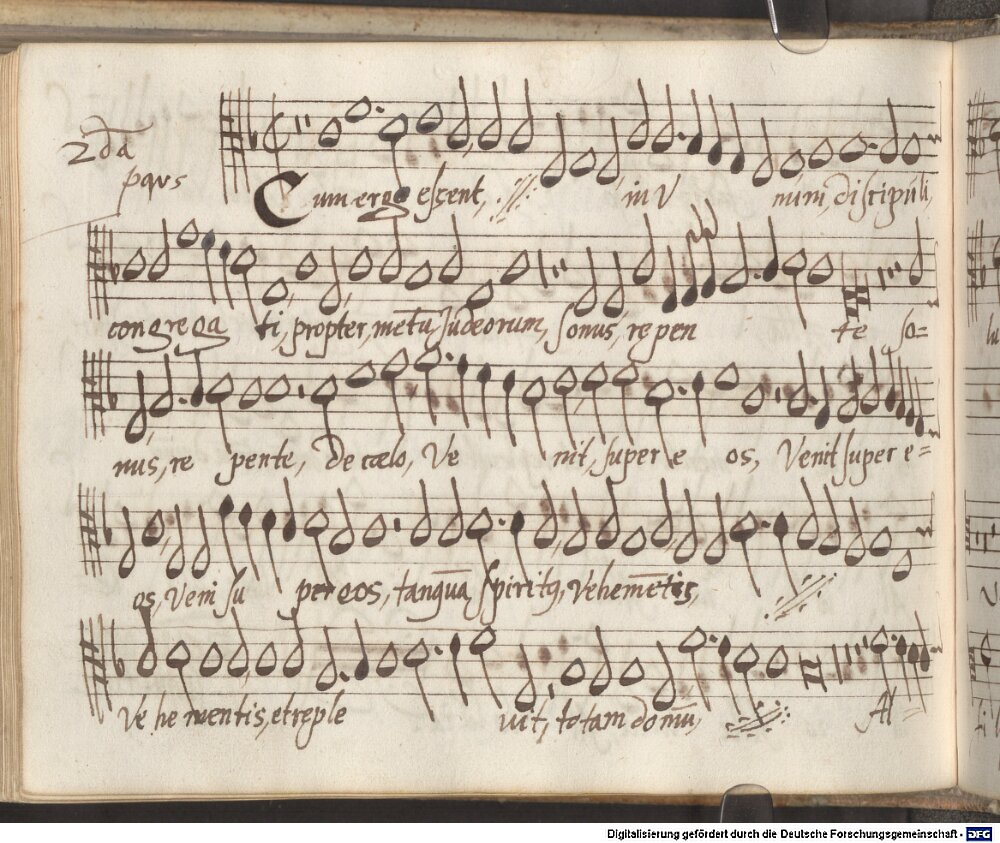 2da
pars
Cum ergo essent, in Unum, discipuli,
congrega ti, propter, metū Judeorum, sonus, repen te so=
nus, re pente, De cœlo, Ve nit, super e os, Venit super e=
os, Veni su per eos, tanquā spiritq, Vehemētis,
Ve he mentis, et reple uit, totam domū, Al=
Digitalisierung gefördert durch die Deutsche Forschungsgemeinschaft - DFG